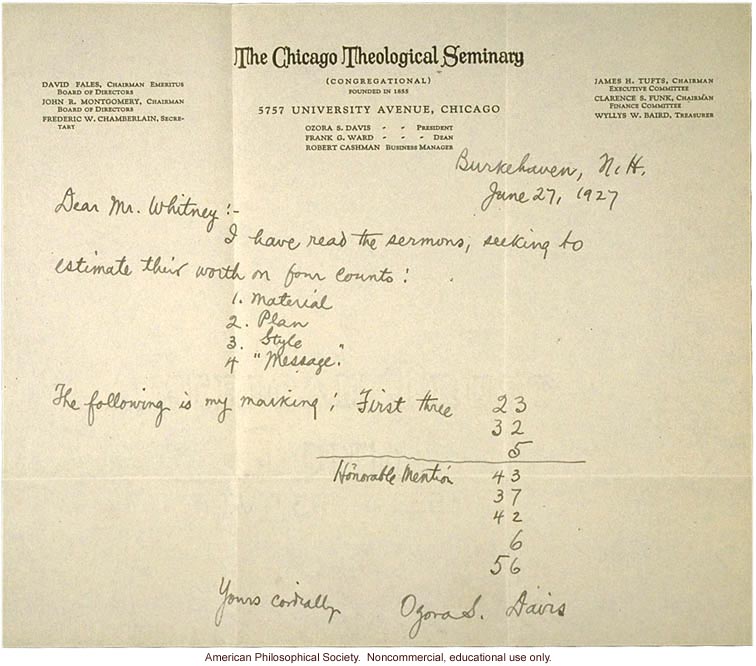 The Chicago Theological Seminary
(CONGREGATIONAL)
FOUNDED IN 1855
5757 UNIVERSITY AVENUE, CHICAGO
DAVID FALES, CHAIRMAN EMERITUS
BOARD OF DIRECTORS
JOHN R. MONTGOMERY, CHAIRMAN
BOARD OF DIRECTORS
FREDERIC W. CHAMBERLAIN, SECRE-
TARY
OZORA S. DAVIS - - PRESIDENT
FRANK G. WARD - - - DEAN
ROBERT CASHMAN BUSINESS MANAGER
JAMES H. TUFTS, CHAIRMAN
EXECUTIVE COMMITTEE
CLARENCE S. FUNK, CHAIRMAN
FINANCE COMMITTEE
WYLLYS W. BAIRD, TREASURER
Burkehaven, N.H.
June 27, 1927
Dear Mr. Whitney:-
I have read the sermons, seeking to
estimate their worth on four counts:
1. Material
2. Plan
3. Style
4 "Message."
The following is my marking: First three 23
32
5
Honorable Mention 43
37
42
6
56
Yours cordially Ozora S. Davis
American Philosophical Society. Noncommercial, educational use only.